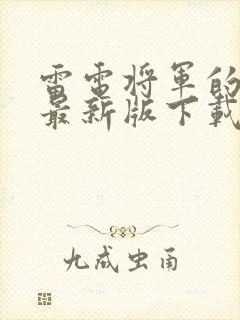 雷電将軍的
最新版下載
九成虫甬